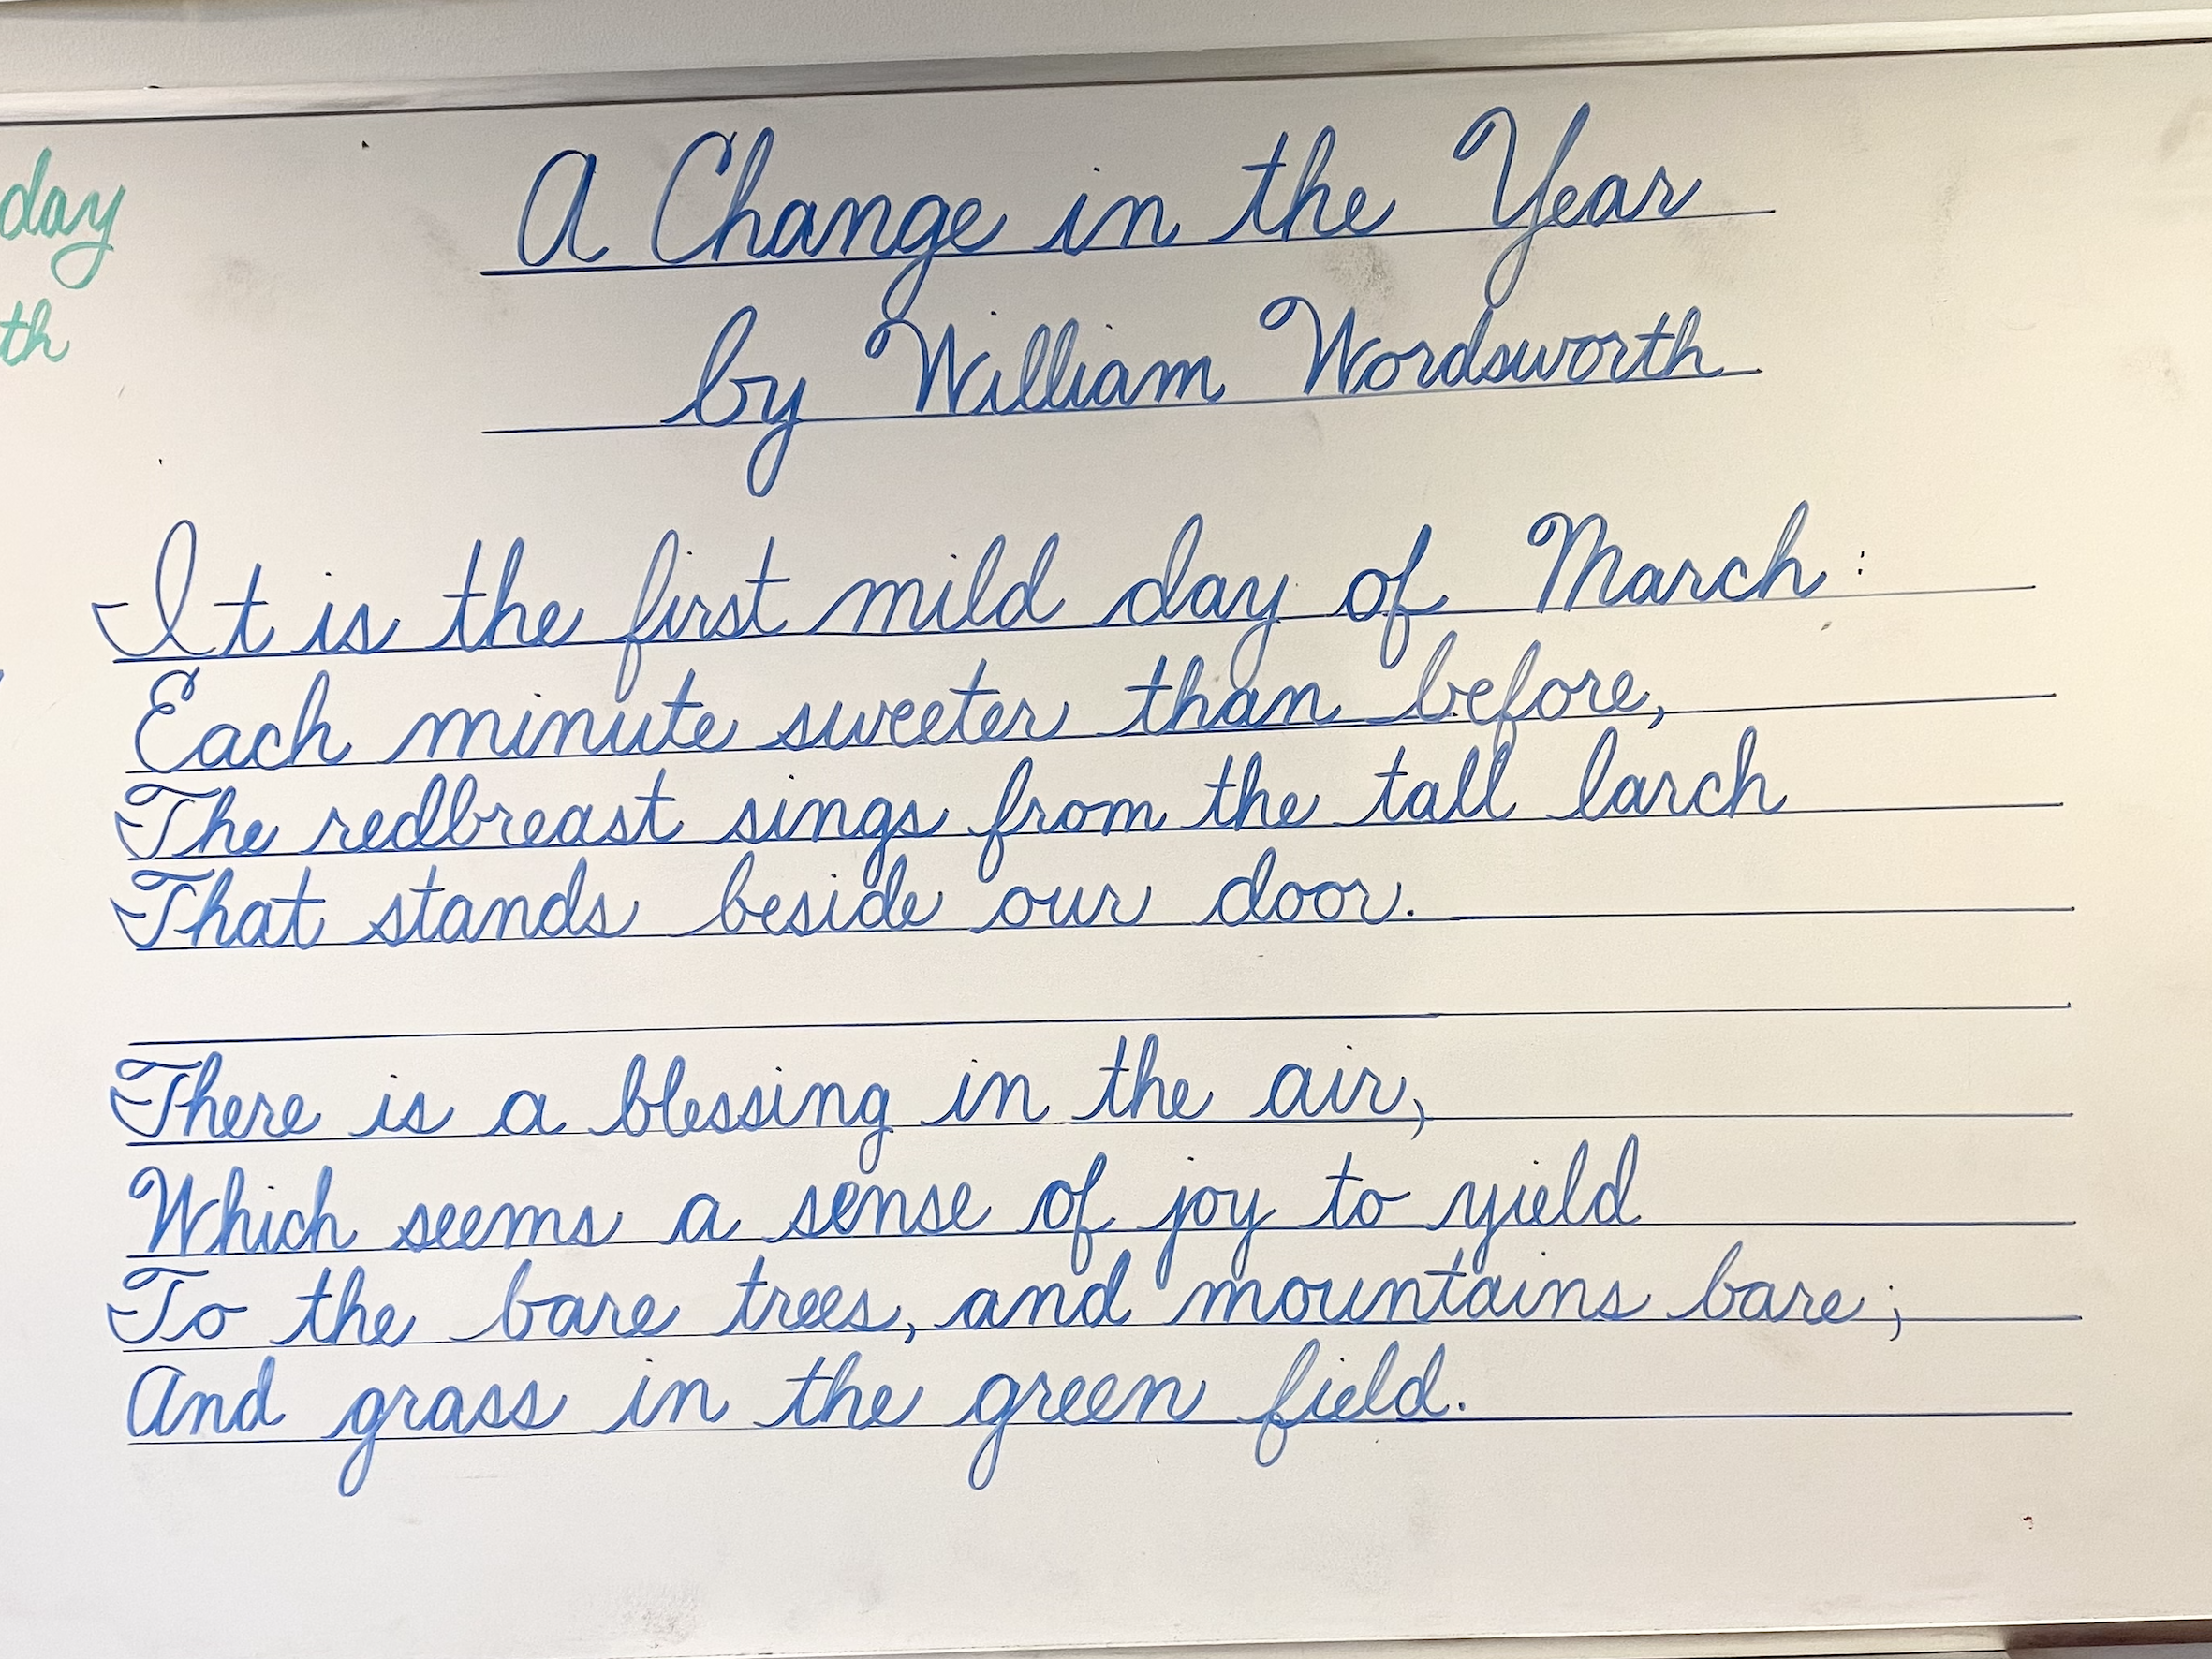 day
th
A Change in the Year
by William Wordsworth
It is the first mild day of March:
Each minute sweeter than before,
The redbreast sings from the tall larch
That stands beside our door.
There is a blessing in the air,
Which seems a sense of joy to yield
To the bare trees, and mountains bare;
And grass in the green field.